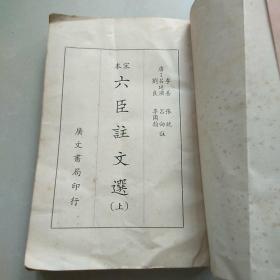 唐 李善 張銑
呂延濟 呂向 註
劉良 李周翰
宋本
六臣註文選(上)
廣文書局印行